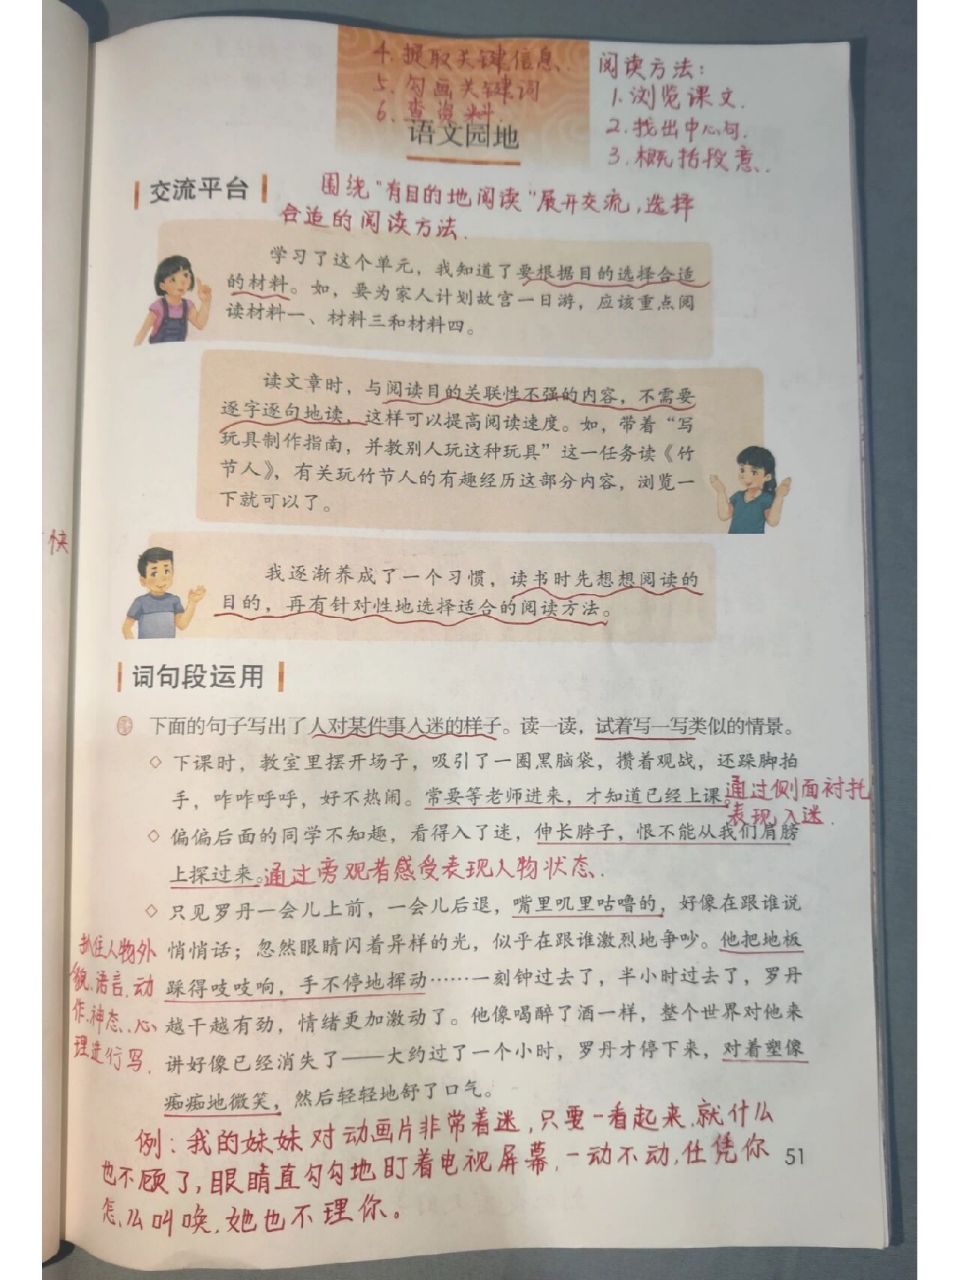 4.提取关键信息.
5.勾画关键词
6.查资料.
阅读方法：
1.浏览课文.
2.找出中心句.
3.概括段意.
语文园地
交流平台
围绕“有目的地阅读”展开交流,选择
合造的阅读方法.
学习了这个单元，我知道了要根据目的选择合适
的材料。如，要为家人计划故宫一日游，应该重点阅
读材料一、材料三和材料四。
读文章时，与阅读目的关联性不强的内容，不需要
逐字逐句地读，这样可以提高阅读速度。如，带着“写
玩具制作指南，并教别人玩这种玩具”这一任务读《竹
节人》，有关玩竹节人的有趣经历这部分内容，浏览一
下就可以了。
快
我逐渐养成了一个习惯，读书时先想想阅读的
目的，再有针对性地选择适合的阅读方法。
词句段运用
下面的句子写出了人对某件事入迷的样子。读一读，试着写一写类似的情景。
◇ 下课时，教室里摆开场子，吸引了一圈黑脑袋，攒着观战，还跺脚拍
手，咋咋呼呼，好不热闹。常要等老师进来，才知道已经上课。
通过侧面衬托
表现入迷.
◇ 偏偏后面的同学不知趣，看得入了迷，伸长脖子，恨不能从我们肩膀
上探过来。通过旁观者感受表现人物状态.
◇ 只见罗丹一会儿上前，一会儿后退，嘴里叽里咕噜的，好像在跟谁说
悄悄话；忽然眼睛闪着异样的光，似乎在跟谁激烈地争吵。他把地板
踩得吱吱响，手不停地挥动……一刻钟过去了，半小时过去了，罗丹
越干越有劲，情绪更加激动了。他像喝醉了酒一样，整个世界对他来
讲好像已经消失了——大约过了一个小时，罗丹才停下来，对着塑像
痴痴地微笑，然后轻轻地舒了口气。
抓住人物外
貌、语言、动
作、神态、心
理进行写.
例：我的妹妹对动画片非常着迷,只要一看起来,就什么
也不顾了,眼睛直勾勾地盯着电视屏幕,一动不动,任凭你
怎么叫唤,她也不理你。
51